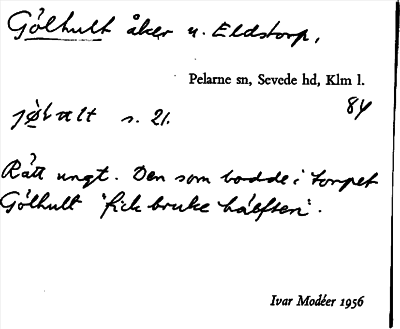 Gölhult åker u. Eldstorp,
Pelarne sn, Sevede hd, Klm l.
84
s. 21.
Rätt ungt. Den som bodde i torpet
Gölhult "fick bruke hälften".
Ivar Modéer 1956